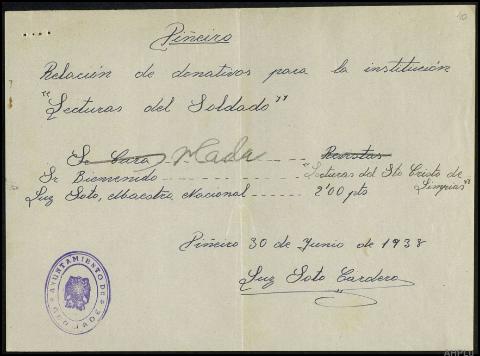 10
Piñeiro
Relación de donativos para la institución
"Lecturas del Soldado"
Sr Cura Nada - - - Revistas
Sr Bienvenido - - - - - - - "Lecturas del Sto Cristo de Limpias"
Luz Soto, Maestra Nacional - - - - - - 2'00 pts
Piñeiro 30 de Junio de 1938
Luz Soto Cardero
AYUNTAMIENTO DE